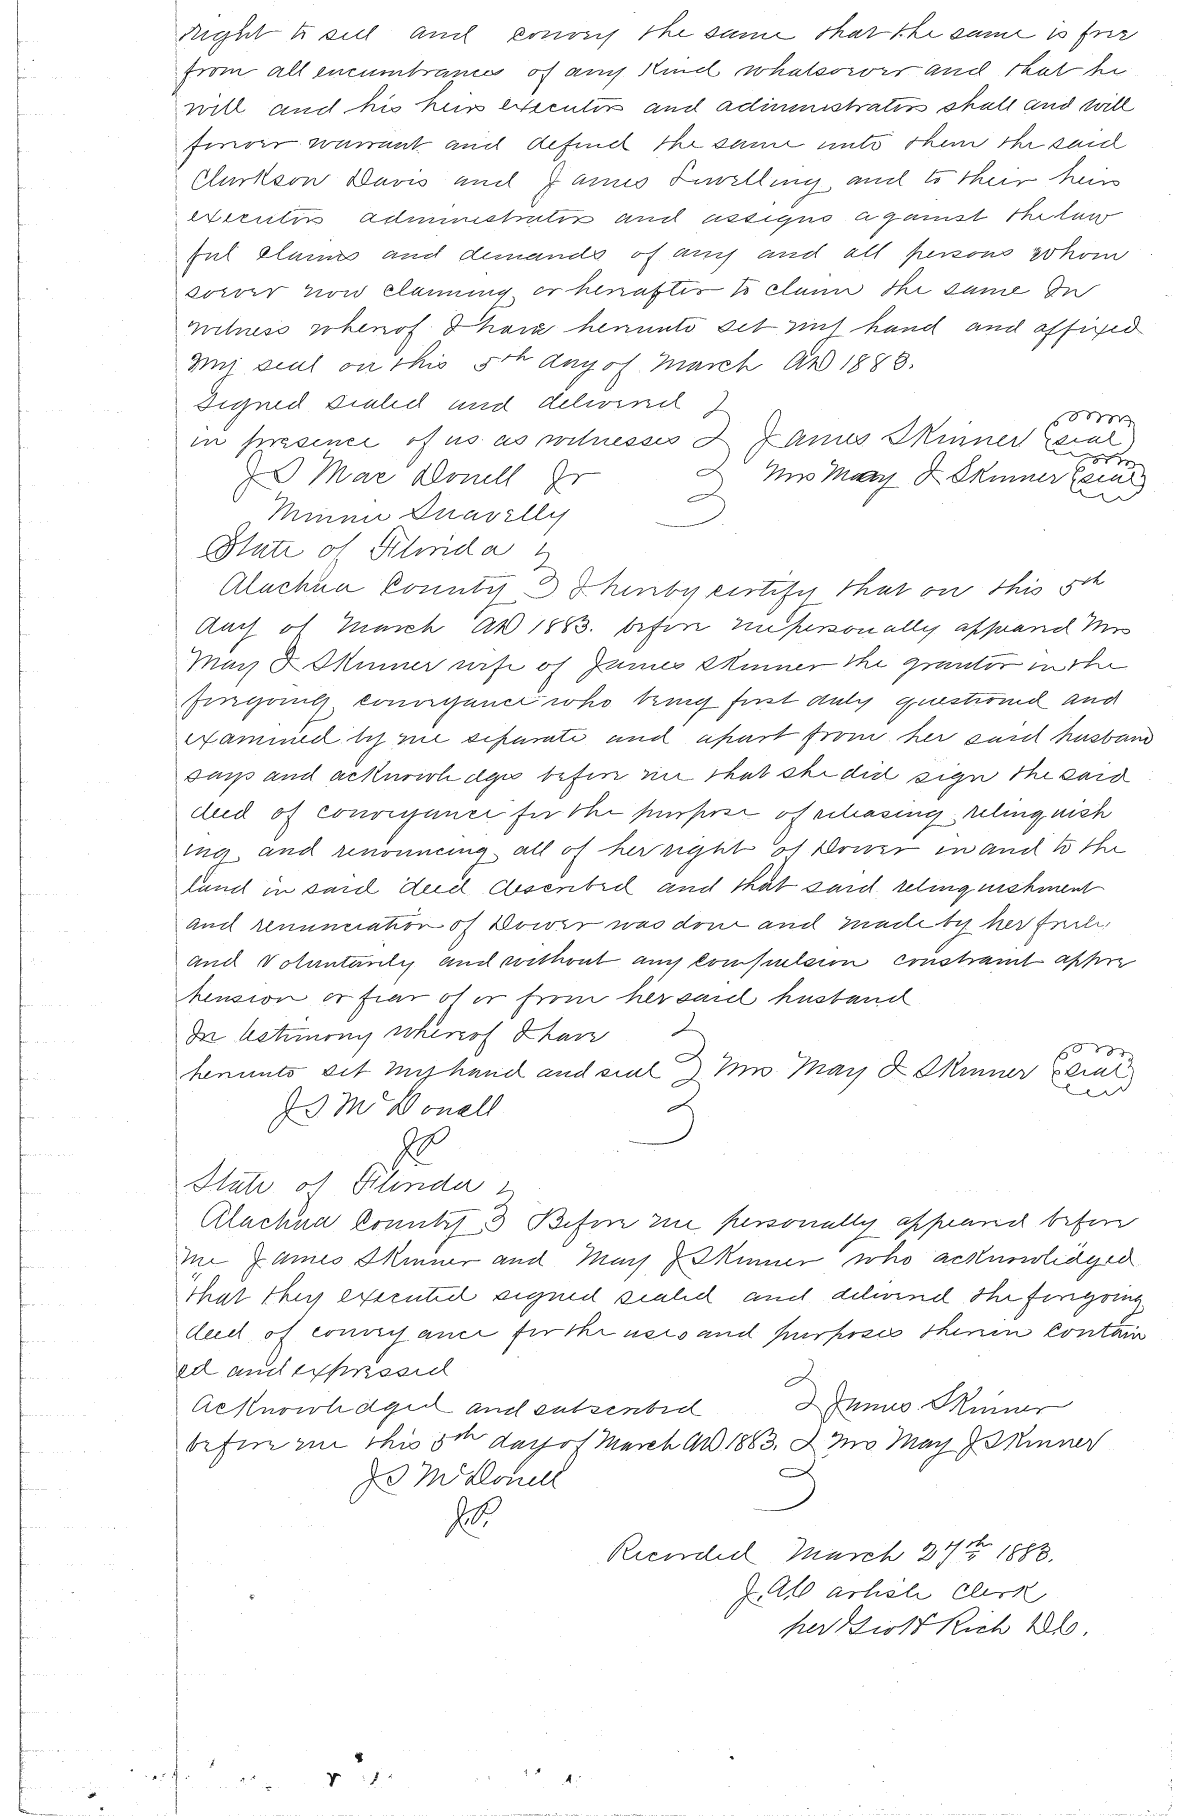 right to sell and convey the same that the same is free
from all encumbrances of any Kind whatsoever and that he
will and his heirs executors and administrators shall and will
forever warrant and defend the same unto them the said
Clarkson Davis and James Lewelling and to their heirs
executors administrators and assigns against the law
ful claims and demands of any and all persons whom
soever now claiming or hereafter to claim the same In
witness whereof I have hereunto set my hand and affixed
my seal on this 5th day of March AD 1883.
Signed sealed and delivered
in presence of us as witnesses James Skinner (seal)
J S MacDonell Jr Mrs May J Skinner (seal)
Minnie
State of Florida
Alachua County I hereby certify that on this 5th
day of March AD 1883. before me personally appeard Mrs
May J Skinner wife of James Skinner the grantor in the
foregoing conveyance who being first duly questioned and
examined by me separate and apart from her said husband
says and acknowledges before me that she did sign the said
deed of conveyance for the purpose of releasing relinquish
ing and renouncing all of her right of Dower in and to the
land in said deed described and that said relinquishment
and renunciation of Dower was done and made by her freely
and Voluntarily and without any compulsion constraint appre
hension or fear of or from her said husband
In testimony whereof I have
hereunto set my hand and seal Mrs May J Skinner (seal)
J S McDonell
JP
State of Florida
Alachua County Before me personally appeard before
me James Skinner and May J Skinner who acknowledged
that they executed signed sealed and deliverd the foregoing
deed of conveyance for the uses and purposes therein contain
ed and expressed
Acknowledged and subscribed James Skinner
before me this 5th day of March AD 1883. Mrs May J Skinner
J S McDonell
J.P.
Recorded March 27th 1883.
J. A. Clerk
per Rich D.C.